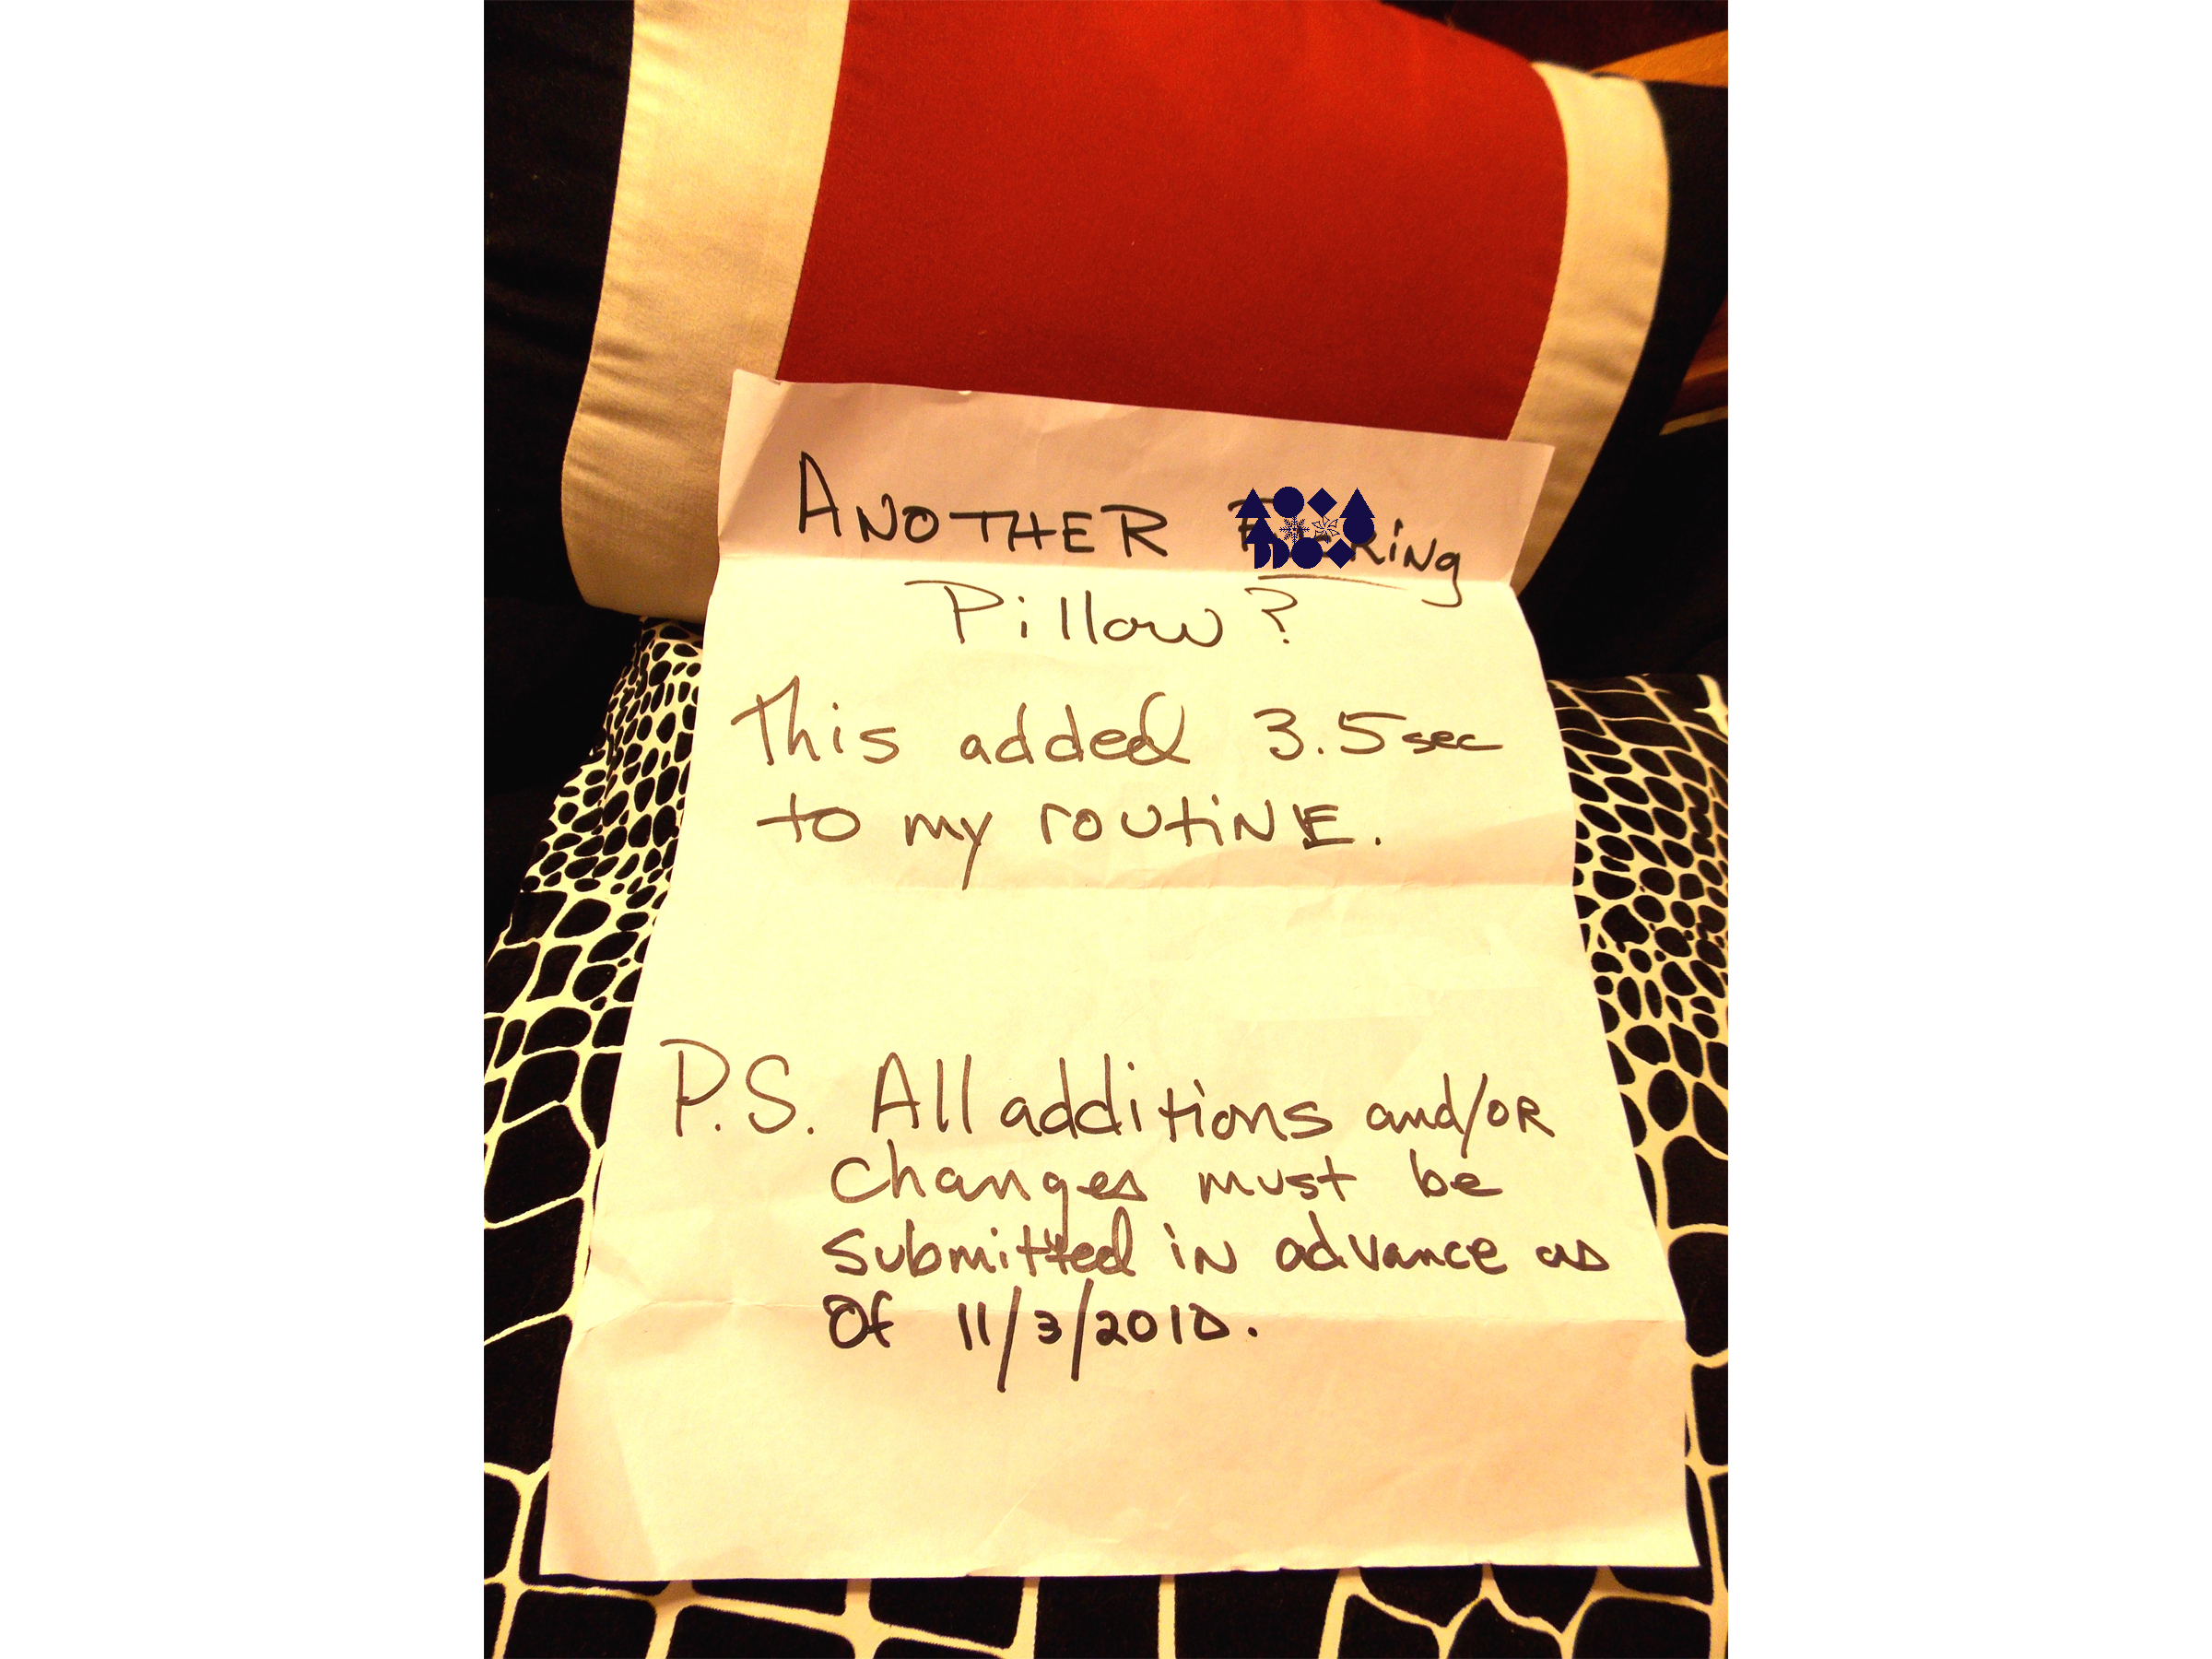 ANOTHER
Pillow?
This added 3.5sec
to my routiNE.
P.S. All additions and/OR
changes must be
submitted iN advance as
Of 11/3/2010.